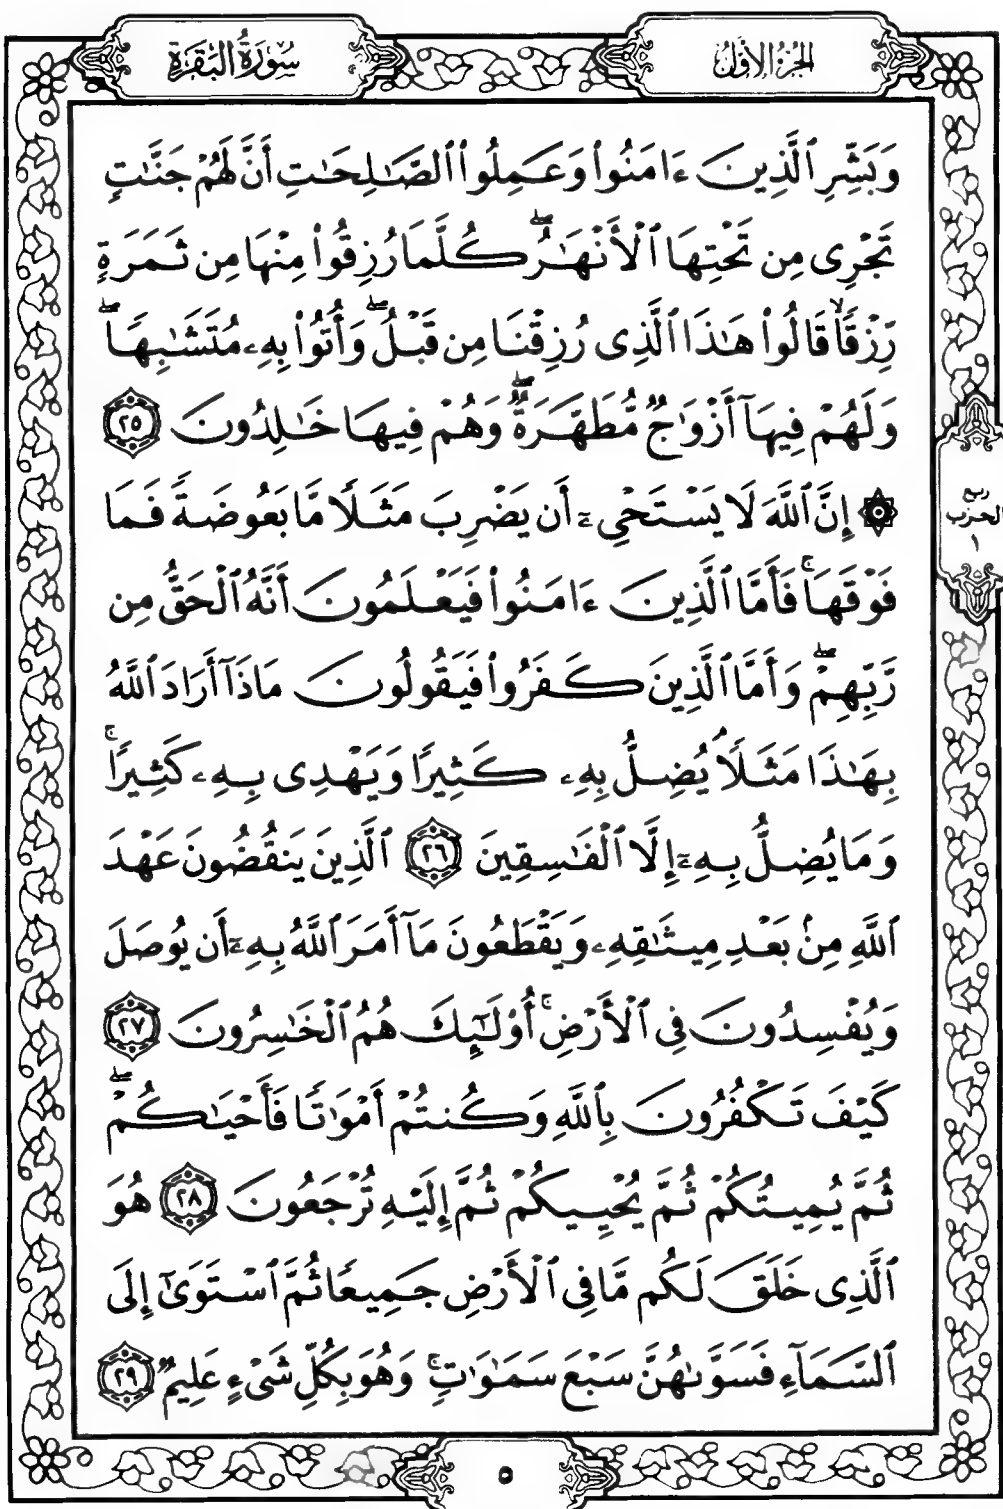 الجزء الأول
سورة البقرة
وَبَشِّرِ ٱلَّذِينَ ءَامَنُوا۟ وَعَمِلُوا۟ ٱلصَّٰلِحَٰتِ أَنَّ لَهُمْ جَنَّٰتٍ
تَجْرِى مِن تَحْتِهَا ٱلْأَنْهَٰرُ ۖ كُلَّمَا رُزِقُوا۟ مِنْهَا مِن ثَمَرَةٍ
رِّزْقًا ۙ قَالُوا۟ هَٰذَا ٱلَّذِى رُزِقْنَا مِن قَبْلُ ۖ وَأُتُوا۟ بِهِۦ مُتَشَٰبِهًا ۖ
وَلَهُمْ فِيهَآ أَزْوَٰجٌ مُّطَهَّرَةٌ ۖ وَهُمْ فِيهَا خَٰلِدُونَ ٢٥
۞ إِنَّ ٱللَّهَ لَا يَسْتَحْىِۦٓ أَن يَضْرِبَ مَثَلًا مَّا بَعُوضَةً فَمَا
فَوْقَهَا ۚ فَأَمَّا ٱلَّذِينَ ءَامَنُوا۟ فَيَعْلَمُونَ أَنَّهُ ٱلْحَقُّ مِن
رَّبِّهِمْ ۖ وَأَمَّا ٱلَّذِينَ كَفَرُوا۟ فَيَقُولُونَ مَاذَآ أَرَادَ ٱللَّهُ
بِهَٰذَا مَثَلًا ۘ يُضِلُّ بِهِۦ كَثِيرًا وَيَهْدِى بِهِۦ كَثِيرًا ۚ
وَمَا يُضِلُّ بِهِۦٓ إِلَّا ٱلْفَٰسِقِينَ ٢٦ ٱلَّذِينَ يَنقُضُونَ عَهْدَ
ٱللَّهِ مِنۢ بَعْدِ مِيثَٰقِهِۦ وَيَقْطَعُونَ مَآ أَمَرَ ٱللَّهُ بِهِۦٓ أَن يُوصَلَ
وَيُفْسِدُونَ فِى ٱلْأَرْضِ ۚ أُو۟لَٰٓئِكَ هُمُ ٱلْخَٰسِرُونَ ٢٧
كَيْفَ تَكْفُرُونَ بِٱللَّهِ وَكُنتُمْ أَمْوَٰتًا فَأَحْيَٰكُمْ ۖ
ثُمَّ يُمِيتُكُمْ ثُمَّ يُحْيِيكُمْ ثُمَّ إِلَيْهِ تُرْجَعُونَ ٢٨ هُوَ
ٱلَّذِى خَلَقَ لَكُم مَّا فِى ٱلْأَرْضِ جَمِيعًا ثُمَّ ٱسْتَوَىٰٓ إِلَى
ٱلسَّمَآءِ فَسَوَّىٰهُنَّ سَبْعَ سَمَٰوَٰتٍ ۚ وَهُوَ بِكُلِّ شَىْءٍ عَلِيمٌ ٢٩
ربع
الحزب
١
٥